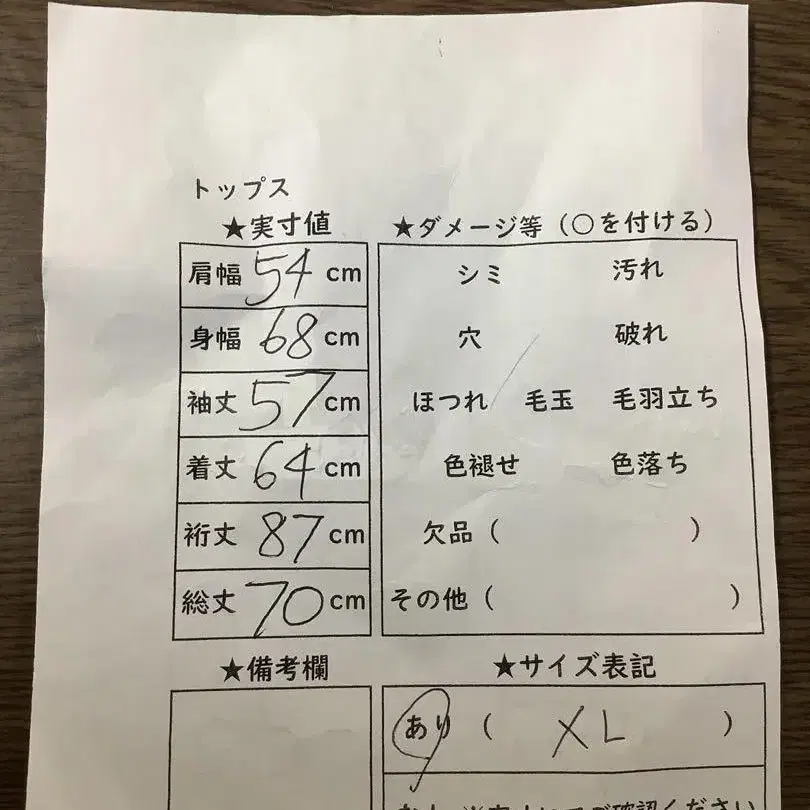 トップス
★実寸値
肩幅 54 cm
身幅 68 cm
袖丈 57 cm
着丈 64 cm
裄丈 87 cm
総丈 70 cm
★ダメージ等（○を付ける）
シミ 汚れ
穴 破れ
ほつれ 毛玉 毛羽立ち
色褪せ 色落ち
欠品（ ）
その他（ ）
★備考欄
★サイズ表記
あり（ XL ）
ご確認ください